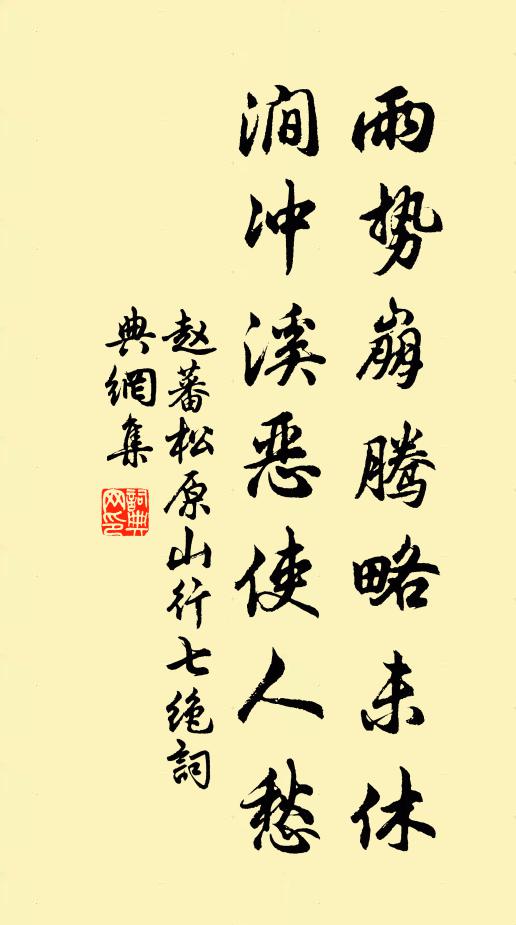 雨势崩腾略未休
涧冲溪恶使人愁
赵蕃松原山行七绝詞
典網集
詞典网印